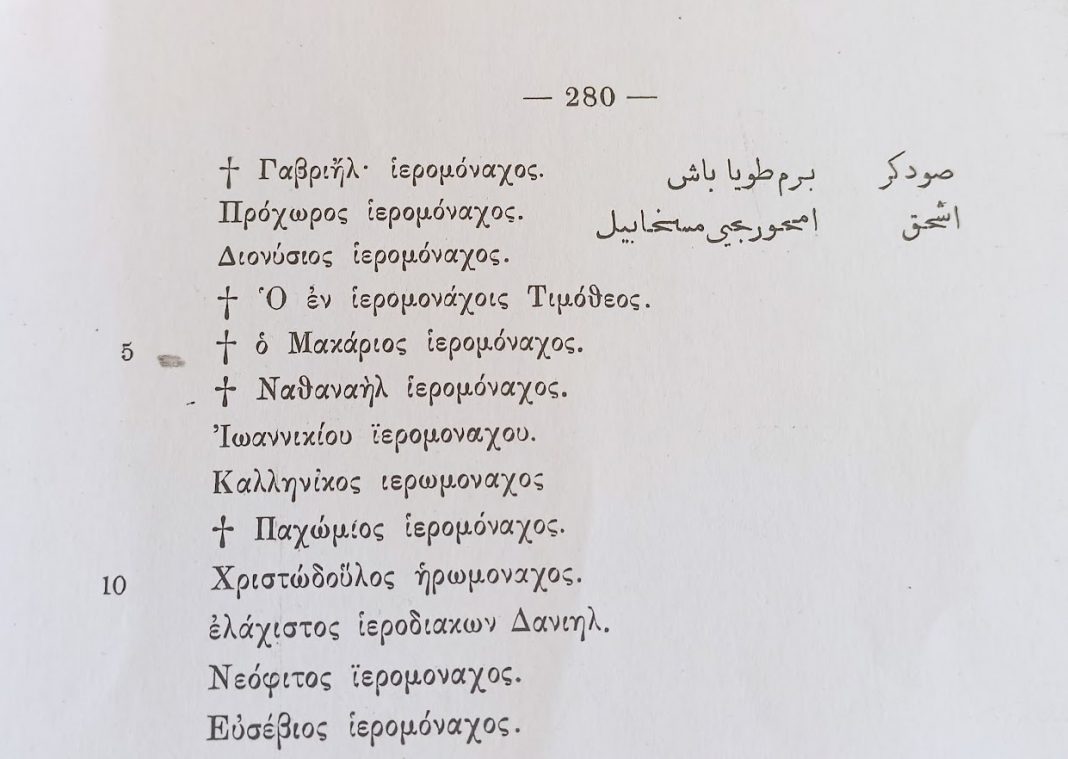 — 280 —
† Γαβριῆλ· ἱερομόναχος. برم طويا باش صودكر
Πρόχωρος ἱερομόναχος. اشحق
Διονύσιος ἱερομόναχος.
† Ὁ ἐν ἱερομονάχοις Τιμόθεος.
5 † ὁ Μακάριος ἱερομόναχος.
† Ναθαναὴλ ἱερομόναχος.
Ἰωαννικίου ϊερομοναχου.
Καλληνίκος ιερωμοναχος
† Παχώμιος ἱερομόναχος.
10 Χριστώδοῦλος ἡρωμοναχος.
ἐλάχιστος ἱεροδιακων Δανιηλ.
Νεόφιτος ϊερομοναχος.
Εὐσέβιος ἱερομόναχος.